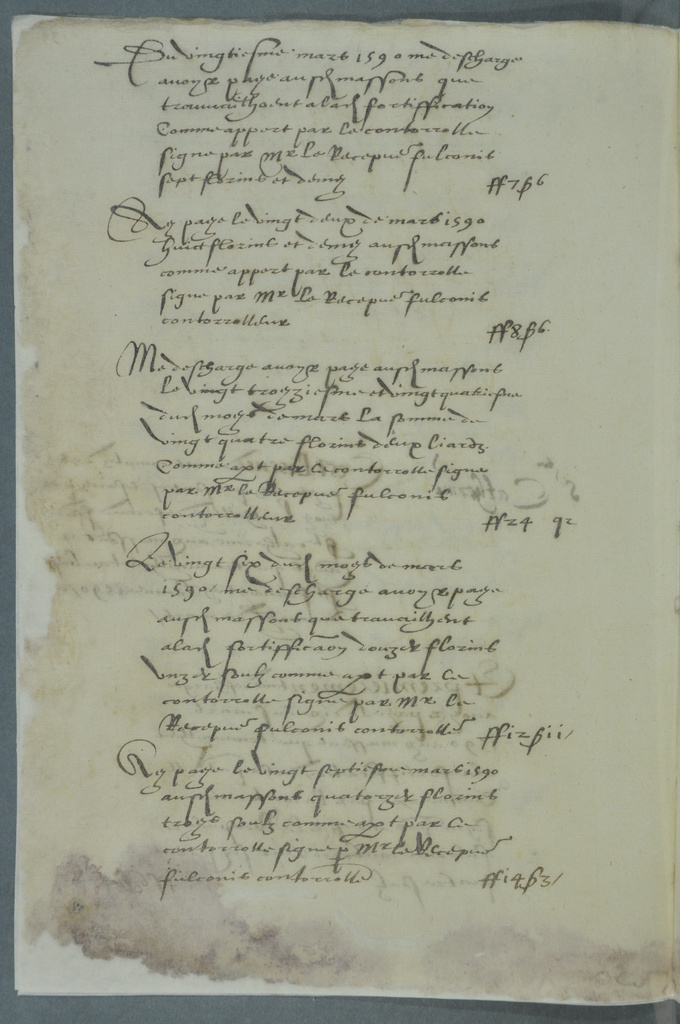 Du vingtiesme mars 1590 me descharge
avoyr page ausd massons que
travailhoent a lad fortiffication
Comme appert par le contorrolle
signe par Mr le Recepveur fulconis
sept florins et demy ff 7 ß 6
Ay page le vingt deux de mars 1590
huict florins et demy ausd massons
comme appert par le contorrolle
signe par Mr le Recepveur fulconis
contorrolleur ff 8 ß 6
Me descharge avoyr page ausd massons
Le vingt troyziesme et vingt quatriesme
dud moys de mars La somme de
vingt quatre florins deux liardz
Comme apt par le contorrolle signe
par Mr le Recepveur fulconis
contorrolleur ff 24 q 2
Le vingt six dud moys de mars
1590 / me descharge avoyr page
ausd massons que travailhent
a lad fortifficaon douze florins
unze soulz comme apt par le
contorrolle signe par Mr le
Recepveur fulconis contorrolleur ff 12 ß 11 /
Ay page le vingt septiesme mars 1590
ausd massons quatorze florins
troys soulz comme apt par le
contorrolle signe p Mr le Recepveur
fulconis contorrolleur ff 14 ß 3 /